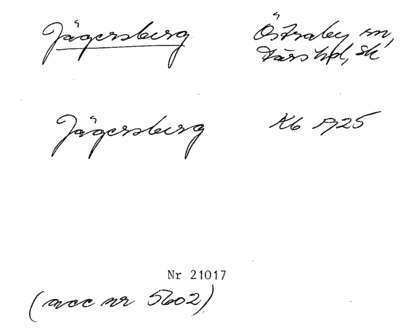 Jägersberg Östraby sn,
Färs hd, Sk
Jägersberg Kb 1925
Nr 21017
(acc nr 5602)